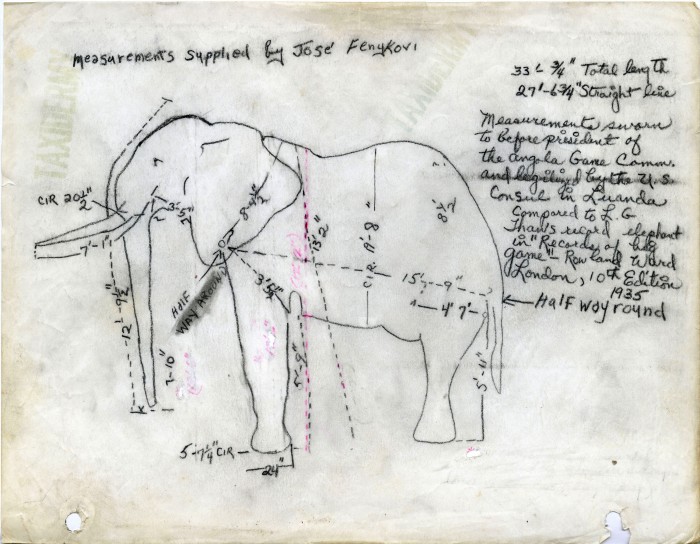 measurements supplied by José Fenykovi
33'- 3/4" Total length
27'-6 3/4" Straight line
Measurements sworn
to before president of
the angola Game Comm.
and legilized by the U.S.
Consul in Luanda
Compared to L.G
Thaw's record elephant
in "Records of big
game" - Rowland Ward
London, 10th Edition
1935
Half way round
TAXIDERMY
CIR 20 1/2"
7'-1"
3'-5"
13'2"
CIR. 19' 8"
8 1/2
15'-9"
4' 7'
HALF
WAY AROUND
12'-9 1/2
7-10"
5'-9"
5'-11"
5-7 1/4" CIR
24"